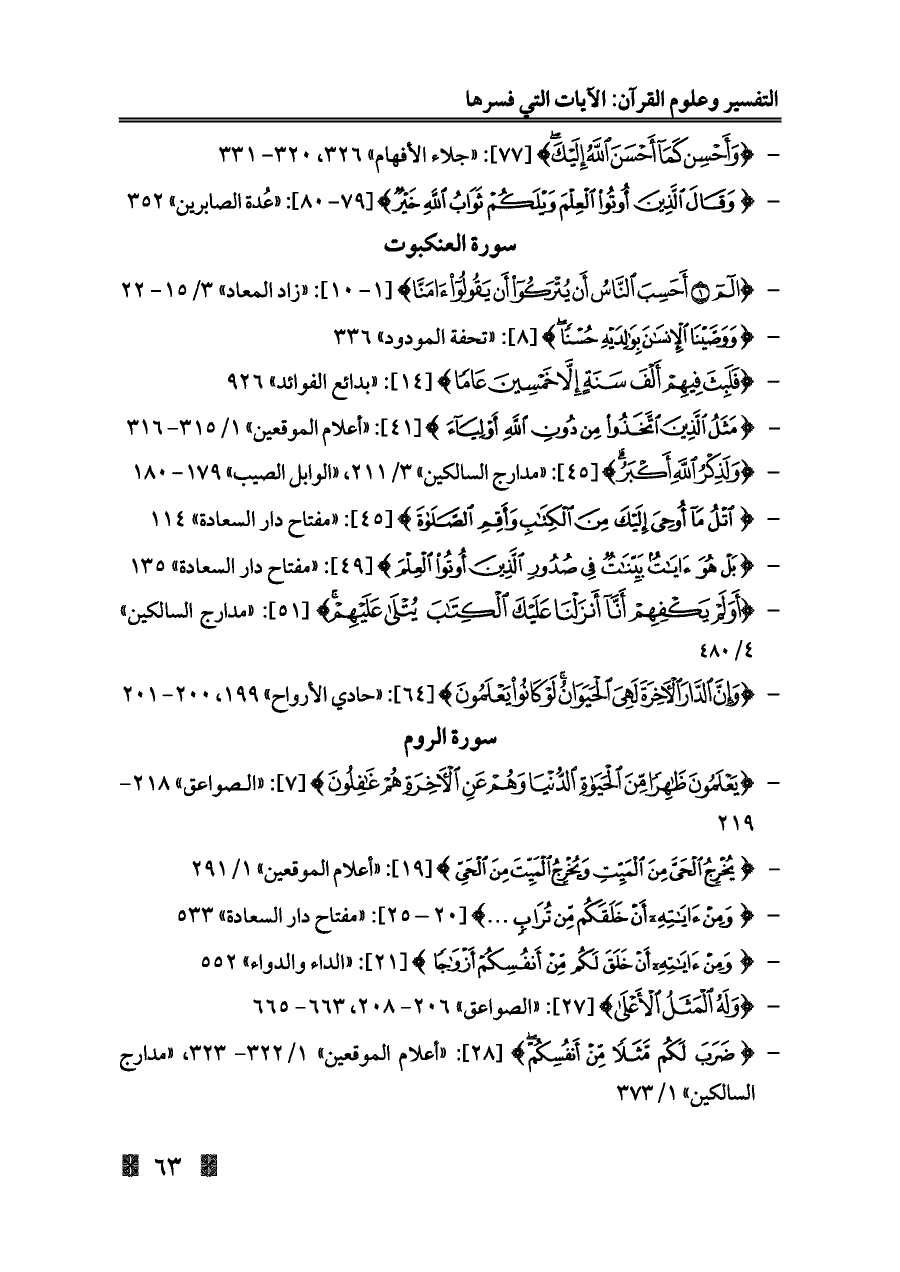 التفسير وعلوم القرآن: الآيات التي فسرها
- ﴿وَأَحْسِن كَمَآ أَحْسَنَ ٱللَّهُ إِلَيْكَۖ﴾ [٧٧]: «جلاء الأفهام» ٣٢٦، ٣٢٠- ٣٣١
- ﴿وَقَالَ ٱلَّذِينَ أُوتُوا۟ ٱلْعِلْمَ وَيْلَكُمْ ثَوَابُ ٱللَّهِ خَيْرٌ﴾ [٧٩- ٨٠]: «عُدة الصابرين» ٣٥٢
سورة العنكبوت
- ﴿الٓمٓ ۝١ أَحَسِبَ ٱلنَّاسُ أَن يُتْرَكُوٓا۟ أَن يَقُولُوٓا۟ ءَامَنَّا﴾ [١- ١٠]: «زاد المعاد» ٣/ ١٥- ٢٢
- ﴿وَوَصَّيْنَا ٱلْإِنسَٰنَ بِوَٰلِدَيْهِ حُسْنًاۖ﴾ [٨]: «تحفة المودود» ٣٣٦
- ﴿فَلَبِثَ فِيهِمْ أَلْفَ سَنَةٍ إِلَّا خَمْسِينَ عَامًا﴾ [١٤]: «بدائع الفوائد» ٩٢٦
- ﴿مَثَلُ ٱلَّذِينَ ٱتَّخَذُوا۟ مِن دُونِ ٱللَّهِ أَوْلِيَآءَ﴾ [٤١]: «أعلام الموقعين» ١/ ٣١٥- ٣١٦
- ﴿وَلَذِكْرُ ٱللَّهِ أَكْبَرُۗ﴾ [٤٥]: «مدارج السالكين» ٣/ ٢١١، «الوابل الصيب» ١٧٩- ١٨٠
- ﴿ٱتْلُ مَآ أُوحِىَ إِلَيْكَ مِنَ ٱلْكِتَٰبِ وَأَقِمِ ٱلصَّلَوٰةَ﴾ [٤٥]: «مفتاح دار السعادة» ١١٤
- ﴿بَلْ هُوَ ءَايَٰتٌۢ بَيِّنَٰتٌ فِى صُدُورِ ٱلَّذِينَ أُوتُوا۟ ٱلْعِلْمَ﴾ [٤٩]: «مفتاح دار السعادة» ١٣٥
- ﴿أَوَلَمْ يَكْفِهِمْ أَنَّآ أَنزَلْنَا عَلَيْكَ ٱلْكِتَٰبَ يُتْلَىٰ عَلَيْهِمْۚ﴾ [٥١]: «مدارج السالكين»
٤/ ٤٨٠
- ﴿وَإِنَّ ٱلدَّارَ ٱلْءَاخِرَةَ لَهِىَ ٱلْحَيَوَانُۚ لَوْ كَانُوا۟ يَعْلَمُونَ﴾ [٦٤]: «حادي الأرواح» ١٩٩، ٢٠٠- ٢٠١
سورة الروم
- ﴿يَعْلَمُونَ ظَٰهِرًا مِّنَ ٱلْحَيَوٰةِ ٱلدُّنْيَا وَهُمْ عَنِ ٱلْءَاخِرَةِ هُمْ غَٰفِلُونَ﴾ [٧]: «الصواعق» ٢١٨-
٢١٩
- ﴿يُخْرِجُ ٱلْحَىَّ مِنَ ٱلْمَيِّتِ وَيُخْرِجُ ٱلْمَيِّتَ مِنَ ٱلْحَىِّ﴾ [١٩]: «أعلام الموقعين» ١/ ٢٩١
- ﴿وَمِنْ ءَايَٰتِهِۦٓ أَنْ خَلَقَكُم مِّن تُرَابٍ ...﴾ [٢٠ - ٢٥]: «مفتاح دار السعادة» ٥٣٣
- ﴿وَمِنْ ءَايَٰتِهِۦٓ أَنْ خَلَقَ لَكُم مِّنْ أَنفُسِكُمْ أَزْوَٰجًا﴾ [٢١]: «الداء والدواء» ٥٥٢
- ﴿وَلَهُ ٱلْمَثَلُ ٱلْأَعْلَىٰ﴾ [٢٧]: «الصواعق» ٢٠٦- ٢٠٨، ٦٦٣- ٦٦٥
- ﴿ضَرَبَ لَكُم مَّثَلًا مِّنْ أَنفُسِكُمْۖ﴾ [٢٨]: «أعلام الموقعين» ١/ ٣٢٢- ٣٢٣، «مدارج
السالكين» ١/ ٣٧٣
٦٣